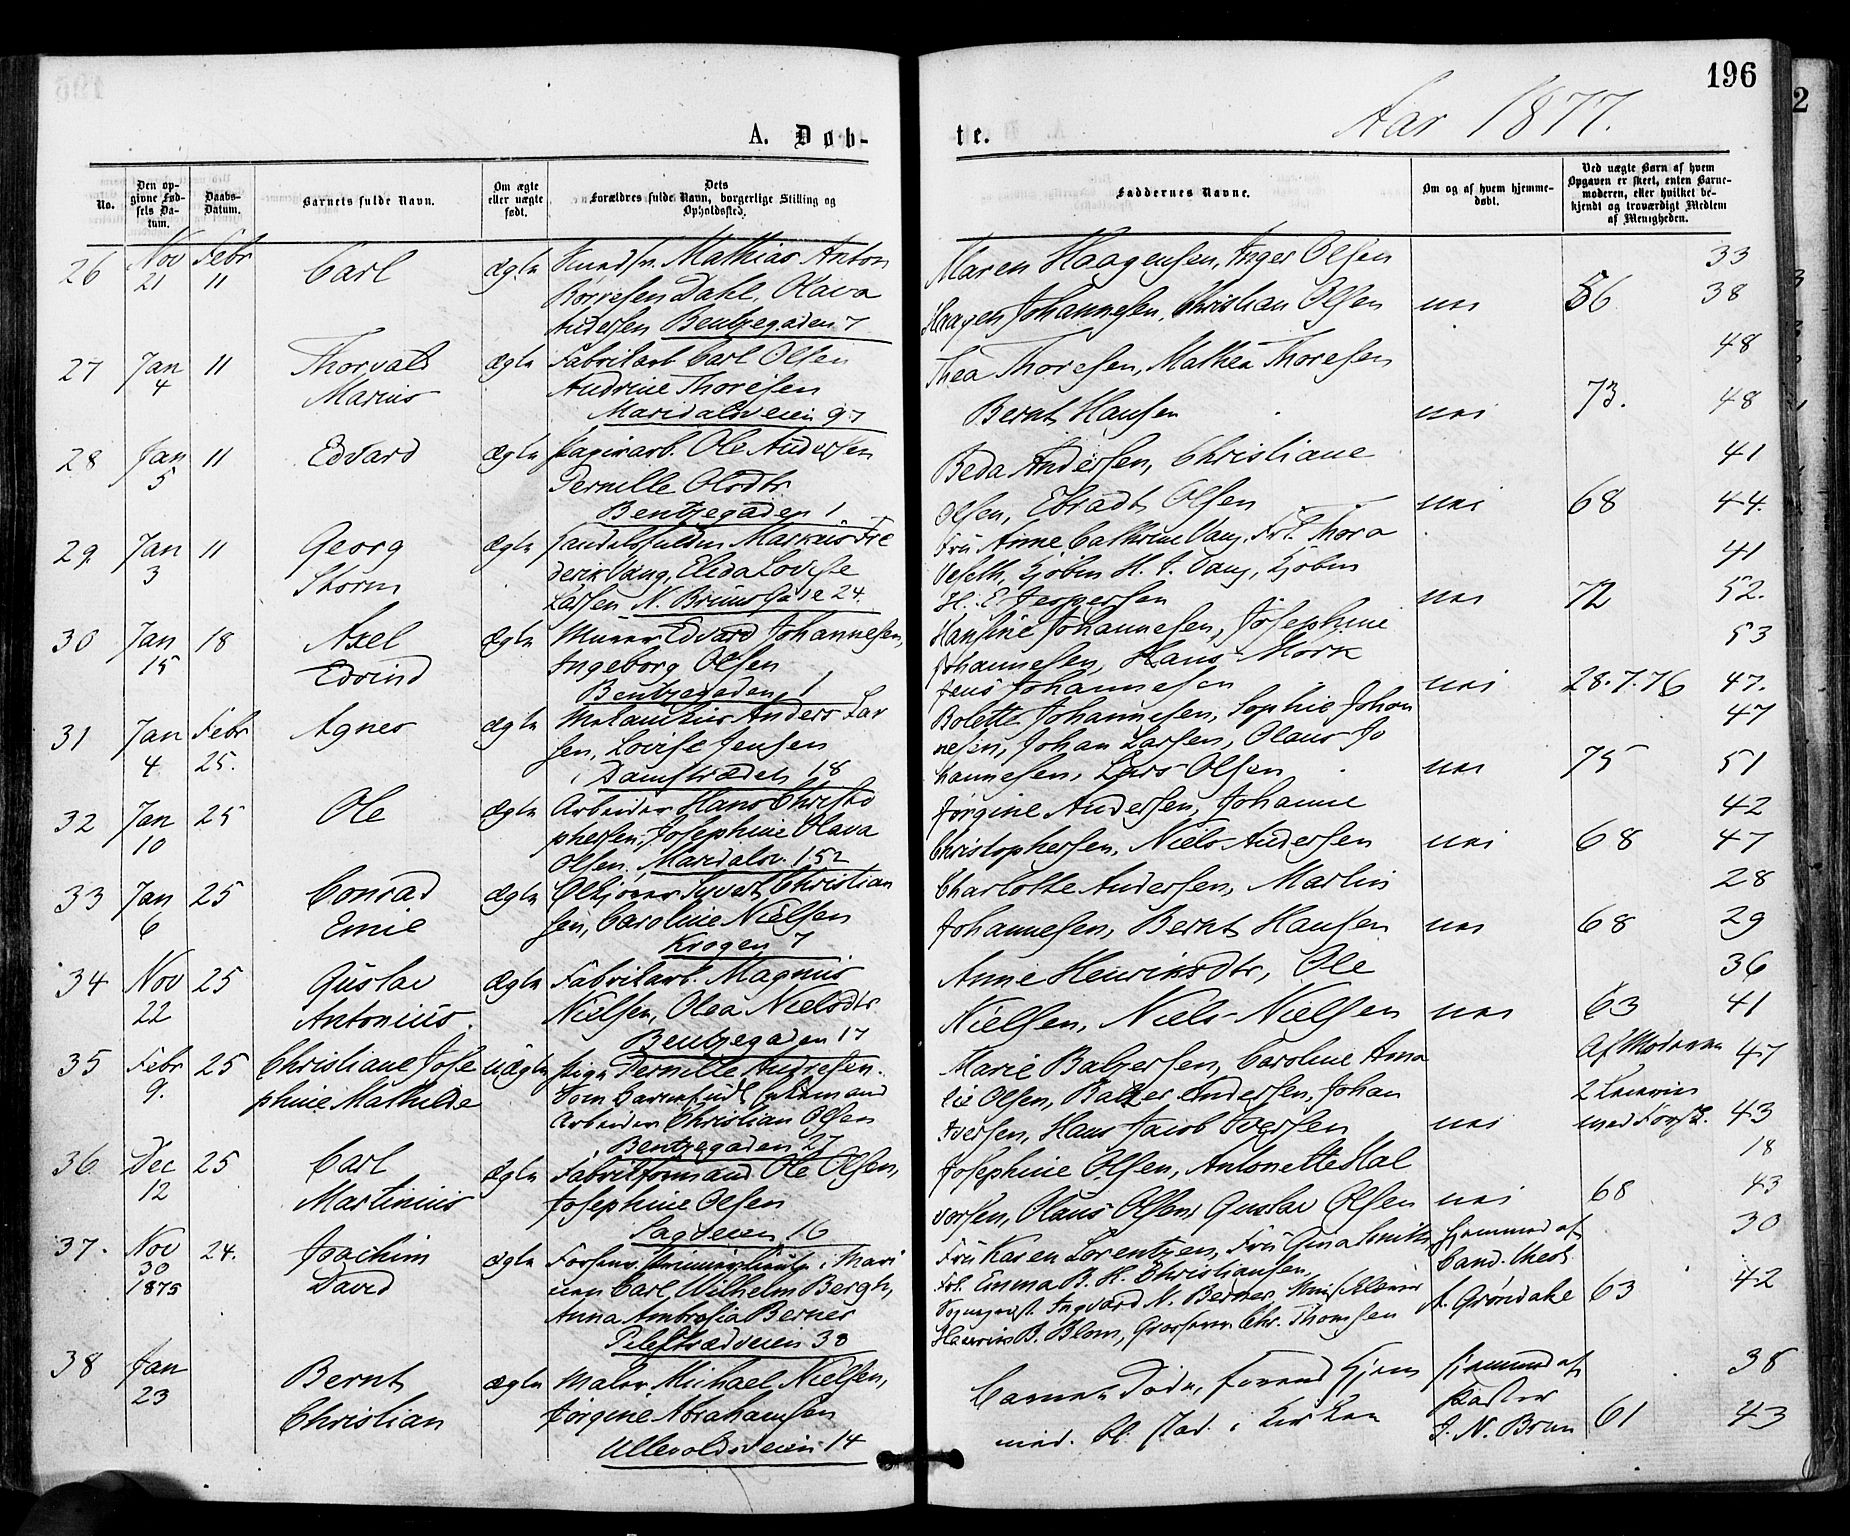 196
Aar 1877.
A. Døb-
te.
No.
Den op-
givne Fød-
sels Da-
tum.
Daabs-
Datum.
Barnets fulde Navn.
Om ægte
eller uægte
født.
Dets
Forældres fulde Navn, borgerlige Stilling og
Opholdssted.
Faddernes Navne.
Om og af hvem hjemme-
døbt.
Ved uægte Børn af hvem
Opgaven er skeet, enten Barne-
moderen, eller hvilket be-
kjendt og troværdigt Medlem
af Menigheden.
26 Nov 21 Febr 11 Carl ægte Mathias Anton
Børresen Dahl, Olava
Andersen Bentzegaden 7
Maren Haagensen, Inger Olsen 33
Haagen Johannesen, Christian Olsen nei 56 38
27 Jan 4 11 Thorvald
Marius ægte Fabrikarb. Carl Olsen
Andrine Thoresen
Maridalsveien 97
Thea Thoresen, Mathea Thoresen 48
Bernt Hansen nei 73. 48
28 Jan 5 11 Edvard ægte Ole Andersen
Pernille Olsdtr.
Bentzegaden 1.
Beda Andersen, Christiane 41
Olsen, Olsen nei 68 44.
29 Jan 3 11 Georg
Storm ægte Markus Fre
derik Vang, Elida Lovise
Larsen N. Bruns Gade 24.
Fru Anne Cathrine Vang, Frk. Thora
Veseth, Kjøbm. H. J. Vang, Kjøbm. 41
H. E. Jespersen nei 72 52.
30 Jan 15 18 Axel
Edvind ægte Murer Edvard Johannesen,
Ingeborg Olsen
Bentzegaden 1
Hansine Johannesen, Josephine 53
Johannesen, Hans Mørk
Jens Johannesen nei 28.7.76 47.
31 Jan 4 Febr 25. Agnes ægte Anders Lar
sen, Lovise Jensen
Damstrædet 18
Bolette Johannesen, Sophie Johan 47
nesen, Johan Larsen, Olaus Jo
hannesen, Lars Olsen nei 75 51
32 Jan 10 25 Ole ægte Arbeider Hans Christo
phersen, Josephine Olava
Olsen. Maridalsv. 152
Jørgine Andersen, Johanne 42
Christophersen, Niels Andersen nei 68 47
33 Jan 6 25 Conrad
Emil ægte Ølkjører Syvert Christian
sen, Caroline Nielsen
Krogen 7
Charlotte Andersen, Martin 28
Johannesen, Bernt Hansen nei 68 29
34 Nov 22 25 Gustav
Antonius. ægte Fabrikarb. Magnus
Nielsen, Olea Nielsdtr
Bentzegaden 17
Anne Henriksdtr, Ole 36
Nielsen, Niels Nielsen nei 63 41
35 Febr 9. 25 Christiane Jose
phine Mathilde uægte Pige Pernille Andresen.
Som Barnefader
Arbeider Christian Olsen
Bentzegaden 27
Marie Baltzersen, Caroline Ama Af Moderen 47
lie Olsen, Baltzer Andersen, Johan
Iversen, Hans Jacob Iversen nei 43
36 Dec 12 25 Carl
Martinius ægte Fabrikformand Ole Olsen,
Josephine Olsen
Sagveien 16
Josephine Olsen, Antonette Hal 18
vorsen, Olaus Olsen, Gustav Olsen nei 68 43
37. Nov 30 1875 24. Joachim
David ægte Premierlieutn. i Mari
nen Carl Wilhelm Bergh,
Anna Ambrosia Berner
Pilestrædveien 38
Fru Karen Lorentzen, Fru Gina Smith, hjemmed. af 30
Frk. Emma B. H. Christiansen, Cand. Med.
Ingvard N. Berner, A. Grøndahl 63 42
B. Blom, Grosserer Chr. Thomsen
38 Jan 23 Bernt
Christian ægte Maler Michael Nielsen,
Jørgine Abrahamsen
Ullevoldsveien 14
Barnet døde, forend Hjem hjemmed. af 38
Stad. i Kirken Pastor
J. N. Brun 61 43